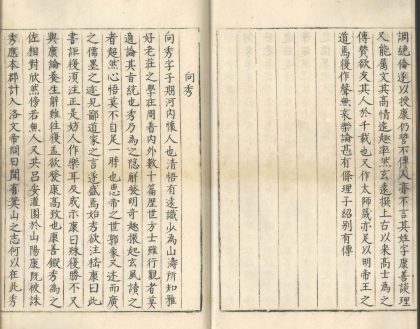 調絶倫遂以授康仍誓不傳人亦不言其姓字康善談理
又能屬文其高情遠趣率然玄遠撰上古以來高士為之
傳贊欲友其人於千載也又作太師箴亦足以明帝王之
道焉復作聲無哀樂論甚有條理子紹別有傳
向秀
向秀字子期河內懷人也清悟有遠識少為山濤所知雅
好老莊之學莊周著內外數十篇歷世方士雖有觀者莫
適論其旨統也秀乃為之隱解發明奇趣振起玄風讀之
者超然心悟莫不自足一時也惠帝之世郭象又述而廣
之儒墨之迹見鄙道家之言遂盛焉始秀欲注嵇康曰此
書詎復須注正是妨人作樂耳及成示康曰殊復勝不又
與康論養生辭難往復蓋欲發康高致也康善鍛秀為之
佐相對欣然傍若無人又共呂安灌園於山陽康既被誅
秀應本郡計入洛文帝問曰聞有箕山之志何以在此秀